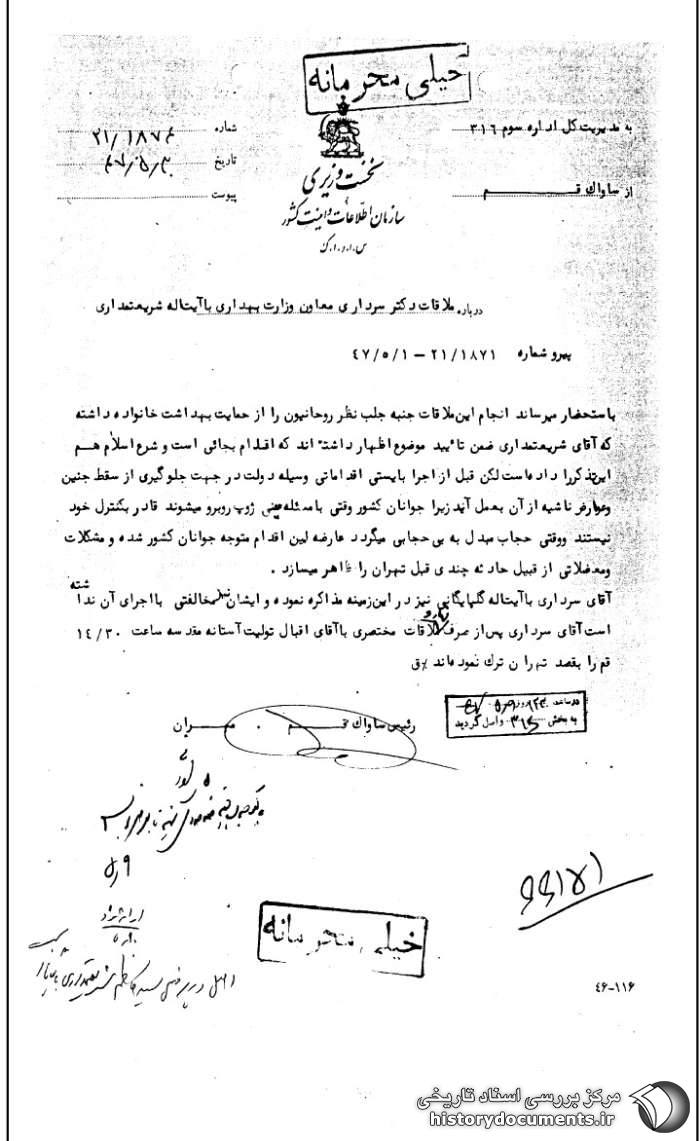 خیلی محرمانه
به مدیریت کل اداره سوم ۳۱۶
شماره ۲۱/۱۸۷۴
از ساواک قم
تاریخ ۴۷/۵/۳
پیوست
نخست وزیری
سازمان اطلاعات و امنیت کشور
س.ا.و.ا.ک
درباره ملاقات دکتر سرداری معاون وزارت بهداری با آیتاله شریعتمداری
پیرو شماره ۲۱/۱۸۷۱ – ۴۷/۵/۱
باستحضار میرساند انجام این ملاقات جنبه جلب نظر روحانیون را از حمایت بهداشت خانواده داشته
که آقای شریعتمداری ضمن تائید موضوع اظهار داشته اند که اقدام بجائی است و شرع اسلام هم
این تذکر را داده است لکن قبل از اجرا بایستی اقداماتی وسیله دولت در جهت جلوگیری از سقط جنین
وعوارض ناشیه از آن بعمل آید زیرا جوانان کشور وقتی با مسئله مینی ژوپ روبرو میشوند قادر بکنترل خود
نیستند ووقتی حجاب مبدل به بی حجابی میگردد عارضه این اقدام متوجه جوانان کشور شده و مشکلات
ومعضلاتی از قبیل حادثه چندی قبل تهران را ظاهر میسازد .
آقای سرداری با آیتاله گلپایگانی نیز در این زمینه مذاکره نموده و ایشان نیز مخالفتی با اجرای آن نداشته
است آقای سرداری پس از صرف ناهار و ملاقات مختصری با آقای اقبال تولیت آستانه مقدسه ساعت ۱۴/۳۰
قم را بقصد تهران ترک نموده اند
رئیس ساواک قم . مهران
در ساعت روز
به بخش ۳۱۶ واصل گردید
۵/۹
خیلی محرمانه
۴۶-۱۱۶
مرکز بررسی اسناد تاریخی
historydocuments.ir